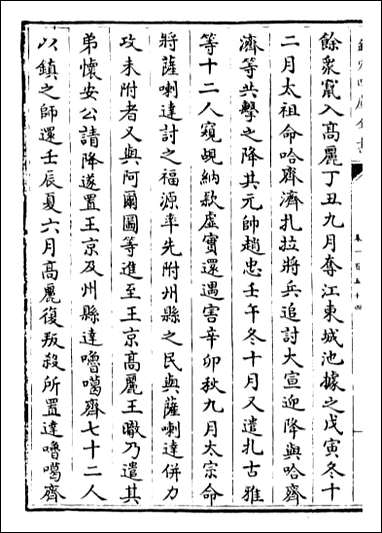 餘衆竄入髙麗丁丑九月奪江東城池據之戊寅冬十
二月太祖命哈齋濟扎拉將兵追討大宣迎降與哈齋
濟等共擊之降其元帥趙忠壬午冬十月又遣扎古雅
等十二人窺覘納欵虚實還遇害辛卯秋九月太宗命
將薩喇達討之福源率先附州縣之民與薩喇達併力
攻未附者又與阿爾圖等進至王京髙麗王㬚乃遣其
弟懷安公請降遂置王京及州縣達嚕噶齊七十二人
以鎮之師還壬辰夏六月髙麗復叛殺所置達嚕噶齊
卷一百五十四